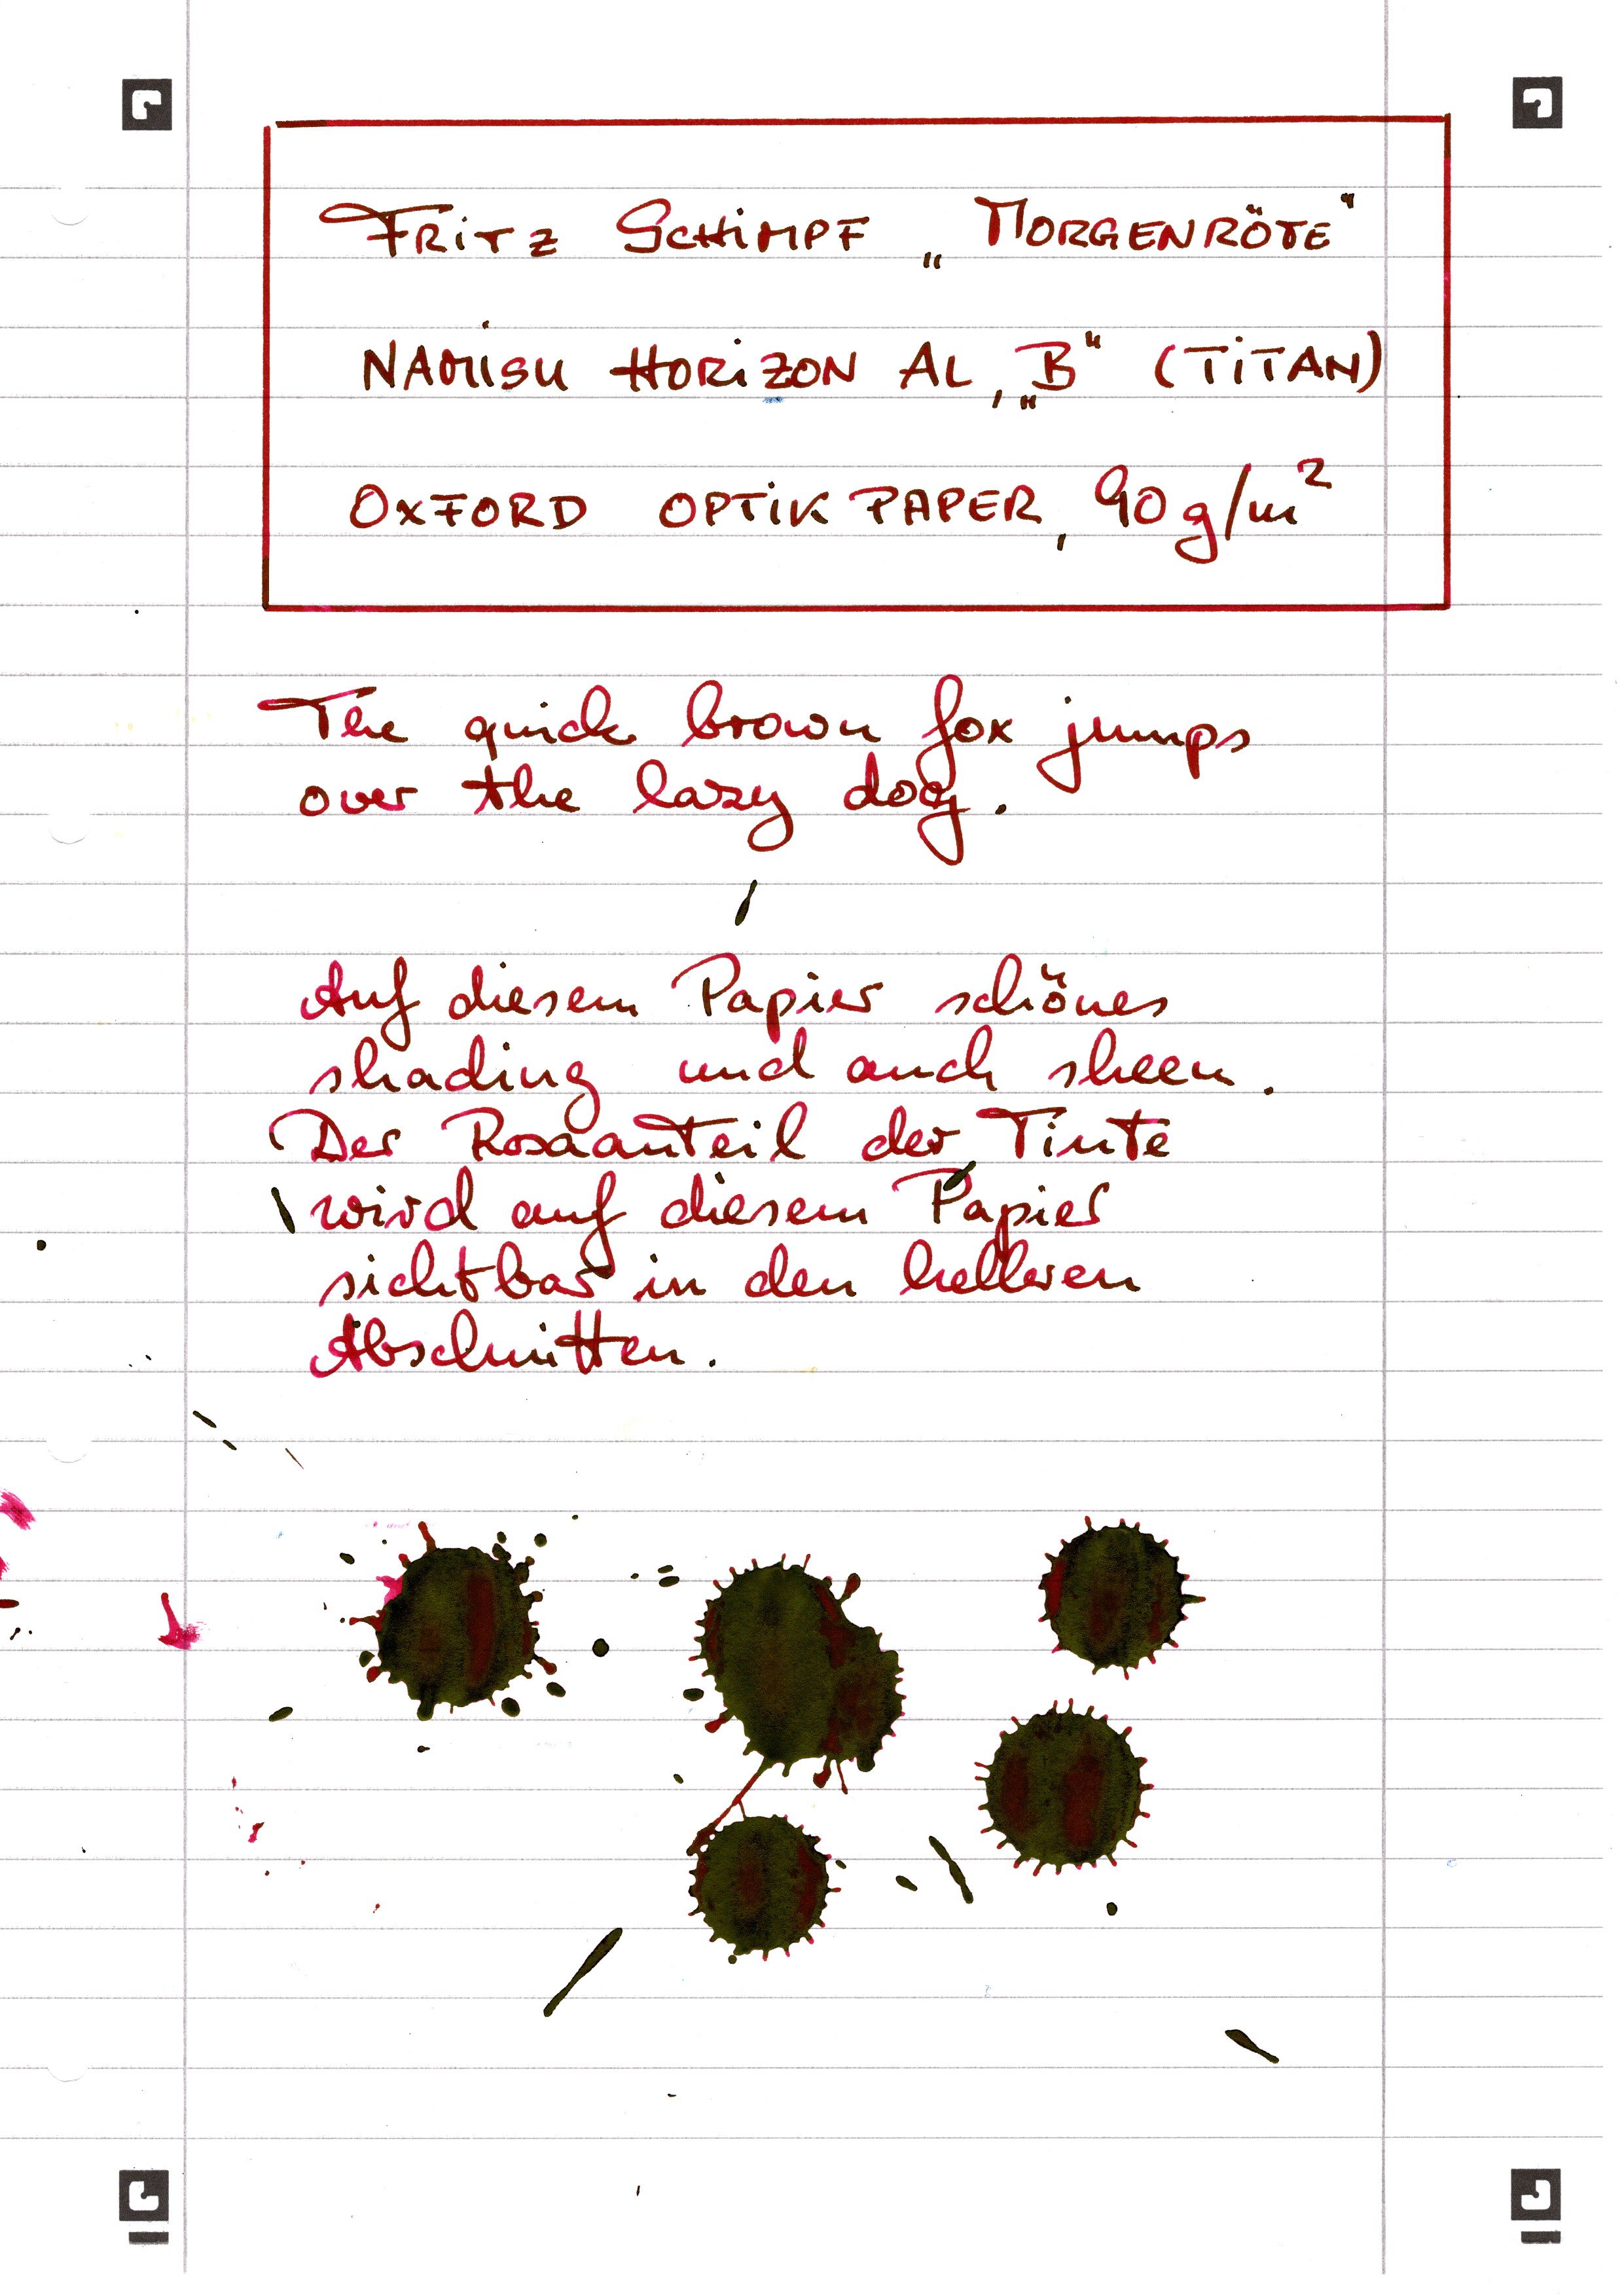 FRiTZ SCHiMPF „MORGENRÖTE“
NAMISU HORiZON AL, „B“ (TiTAN)
OXFORD OPTiK PAPER, 90 g/m²
The quick brown fox jumps
over the lazy dog.
Auf diesem Papier schönes
shading und auch sheen.
Der Rosaanteil der Tinte
wird auf diesem Papier
sichtbar in den helleren
Abschnitten.